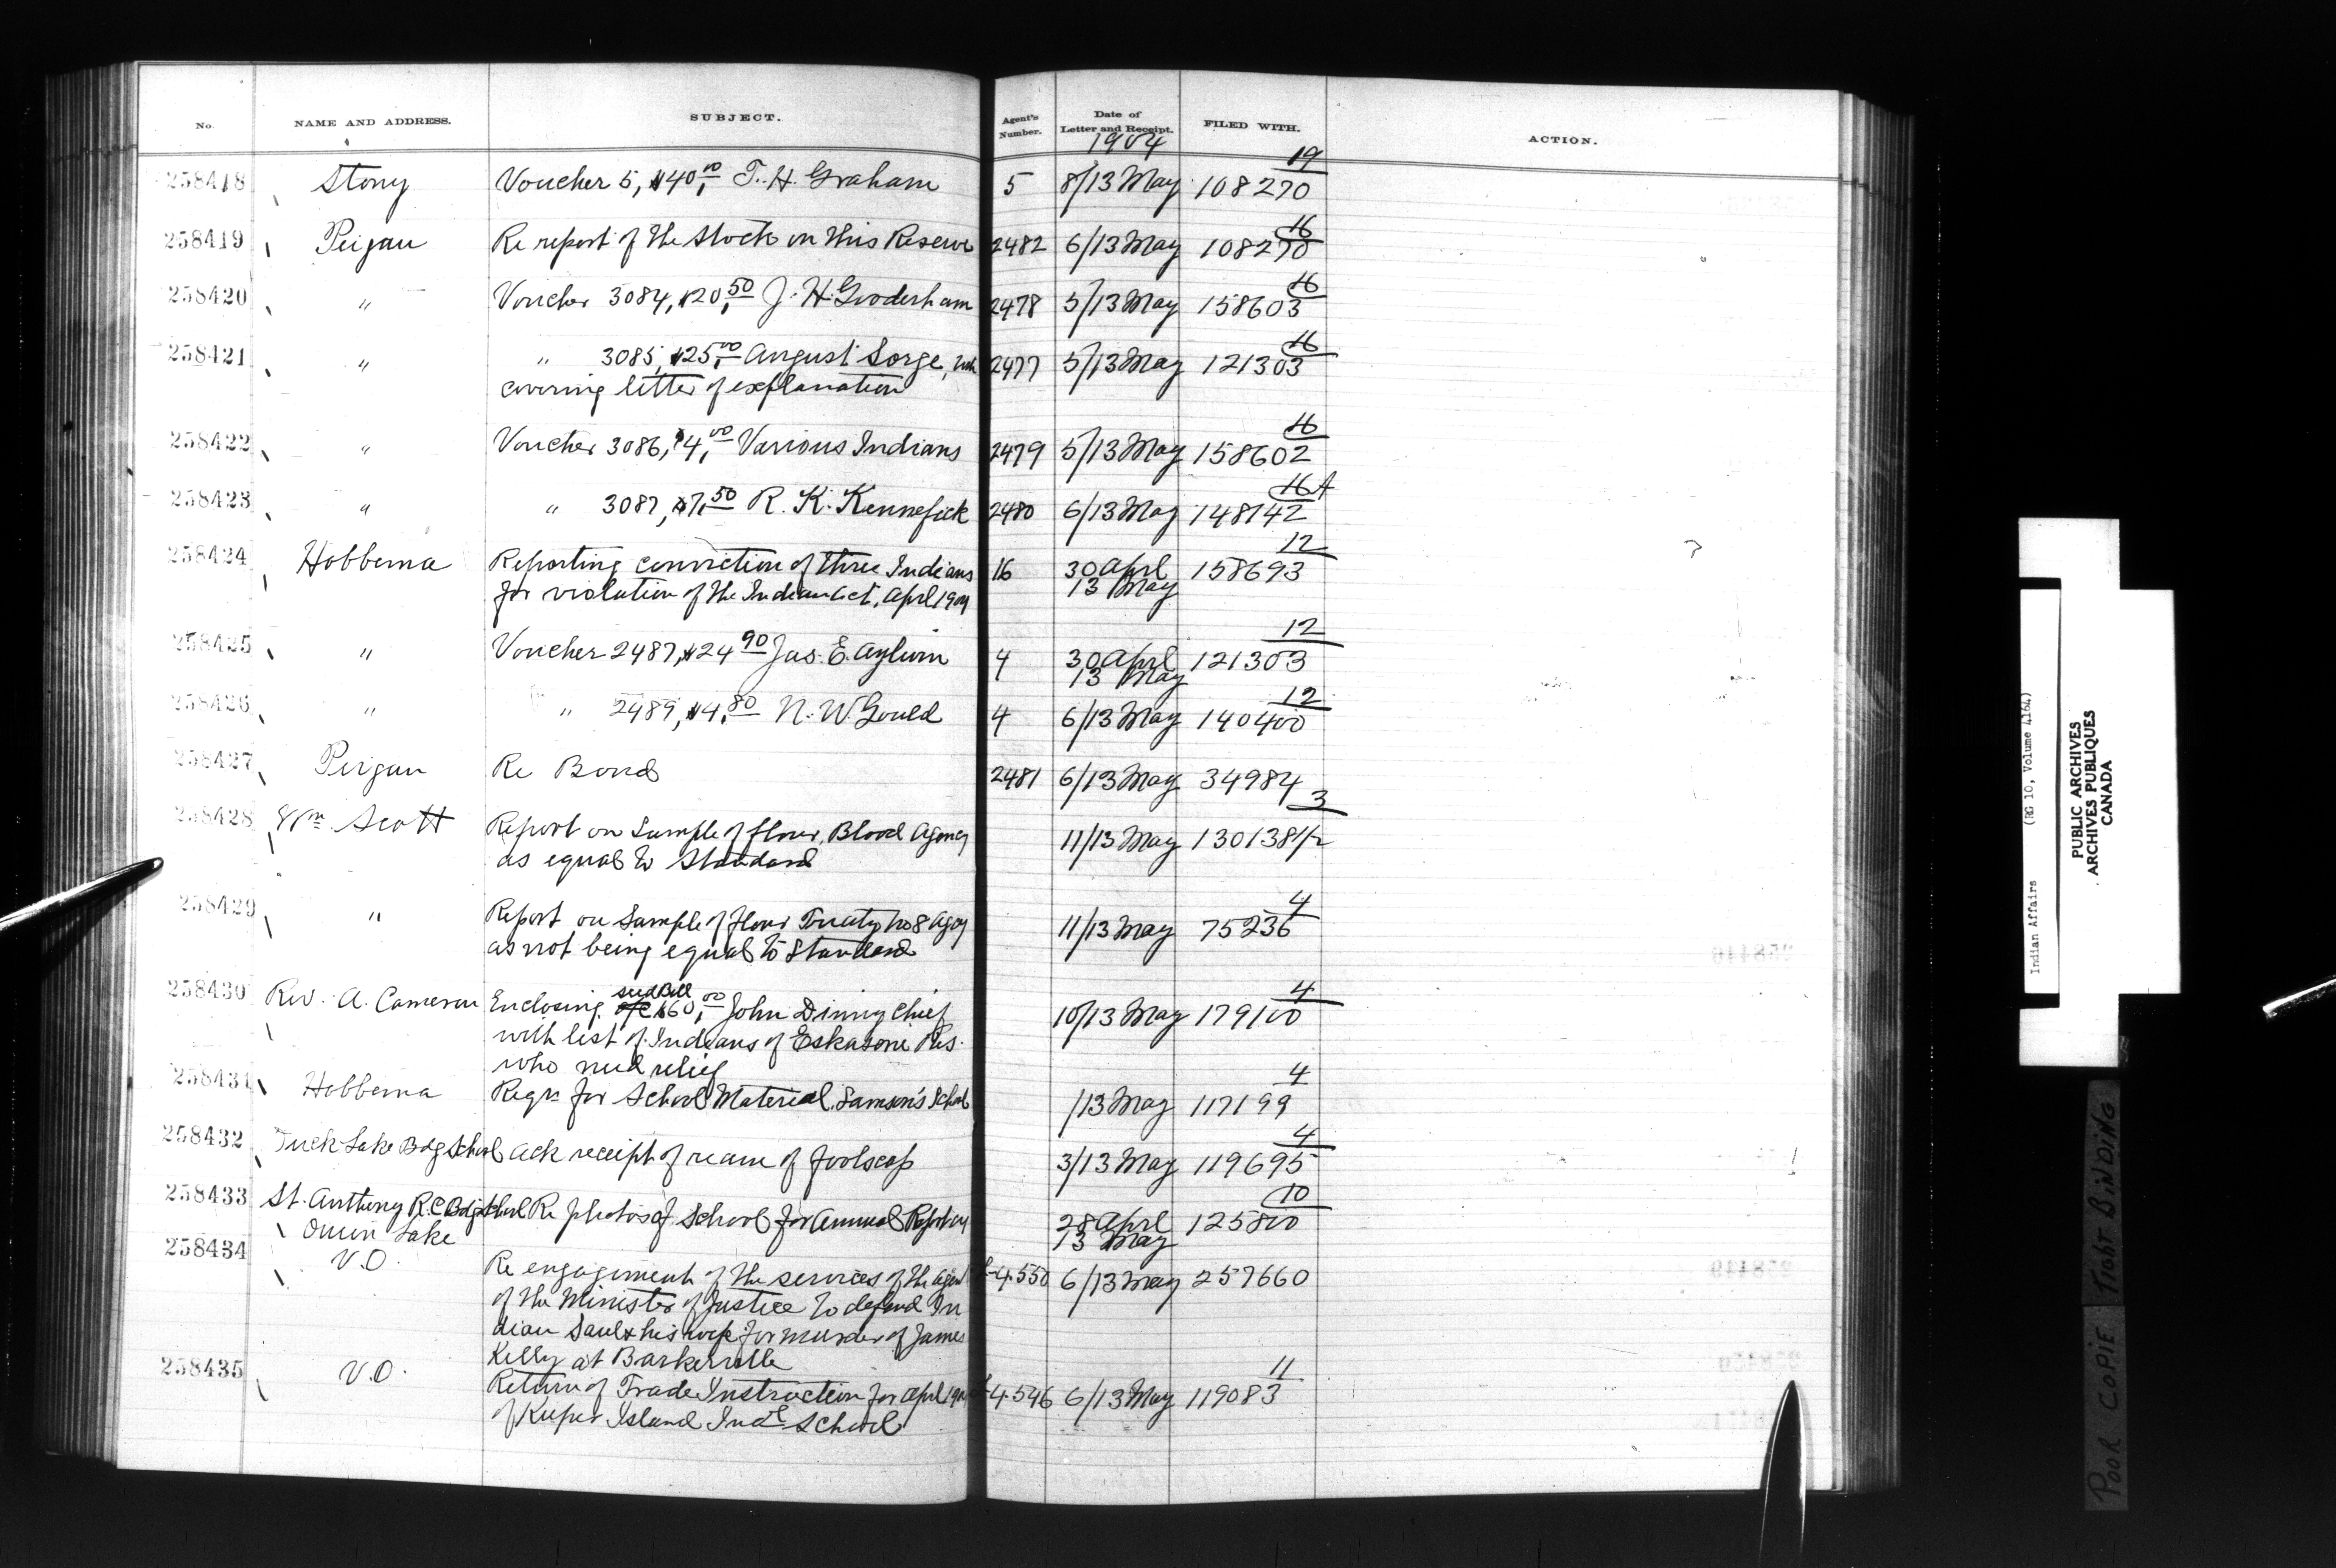 No. NAME AND ADDRESS. SUBJECT. Agent's Number. Date of Letter and Receipt. FILED WITH. ACTION.
1904
19
258418 Stony Voucher 5, $40,00 T. H. Graham 5 8/13 May 108270
16
258419 Peigan Re report of the Stock on this Reserve 2482 6/13 May 108270
16
258420 " Voucher 3084, $20,50 J. H. Gooderham 2478 5/13 May 158603
16
258421 " " 3085, $25,00 August Sorge, with 2477 5/13 May 121303
covering letter of explanation
16
258422 " Voucher 3086, $4,00 Various Indians 2479 5/13 May 158602
16A
258423 " " 3087, $7,50 R. K. Kennefick 2480 6/13 May 148742
12
258424 Hobbema Reporting conviction of three Indians 16 30 April 158693
for violation of the Indian Act, April 1904 13 May
12
258425 " Voucher 2487, $24 90 Jas. E. Aylwin 4 30 April 121303
13 May
12
258426 " " 2489, $4,80 N. W. Gould 4 6/13 May 140400
258427 Peigan Re Bond 2481 6/13 May 34984
3
258428 Wm Scott Report on Sample of flour, Blood Agency 11/13 May 130138 1/2
as equal to Standard
4
258429 " Report on Sample of flour Treaty No 8 Agcy 11/13 May 75236
as not being equal to Standard
seed Bill 4
258430 Rev. A. Cameron Enclosing $60,00 John Dinny Chief 10/13 May 179100
with list of Indians of Eskasoni Res.
who need relief
4
258431 Hobbema Reqn for School Material, Samson's School /13 May 117199
4
258432 Duck Lake Bdg School Ack receipt of ream of foolscap 3/13 May 119695
10
258433 St. Anthony R.C. Bdg School Re photos of School for Annual Report 28 April 125800
Onion Lake 13 May
258434 V.O. Re engagement of the services of the Agent 4550 6/13 May 257660
of the Minister of Justice to defend In
dian Saul & his wife for murder of James
Kelly at Barkerville
11
258435 V.O. Return of Trade Instruction for April 1904 4546 6/13 May 119083
of Kuper Island Indl School
Indian Affairs (RG 10, Volume 4164)
PUBLIC ARCHIVES
ARCHIVES PUBLIQUES
CANADA
POOR COPIE TIGHT BINDING